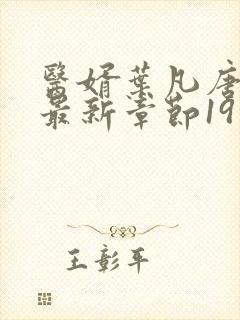 醫婿葉凡唐
最新章節19
王彰平